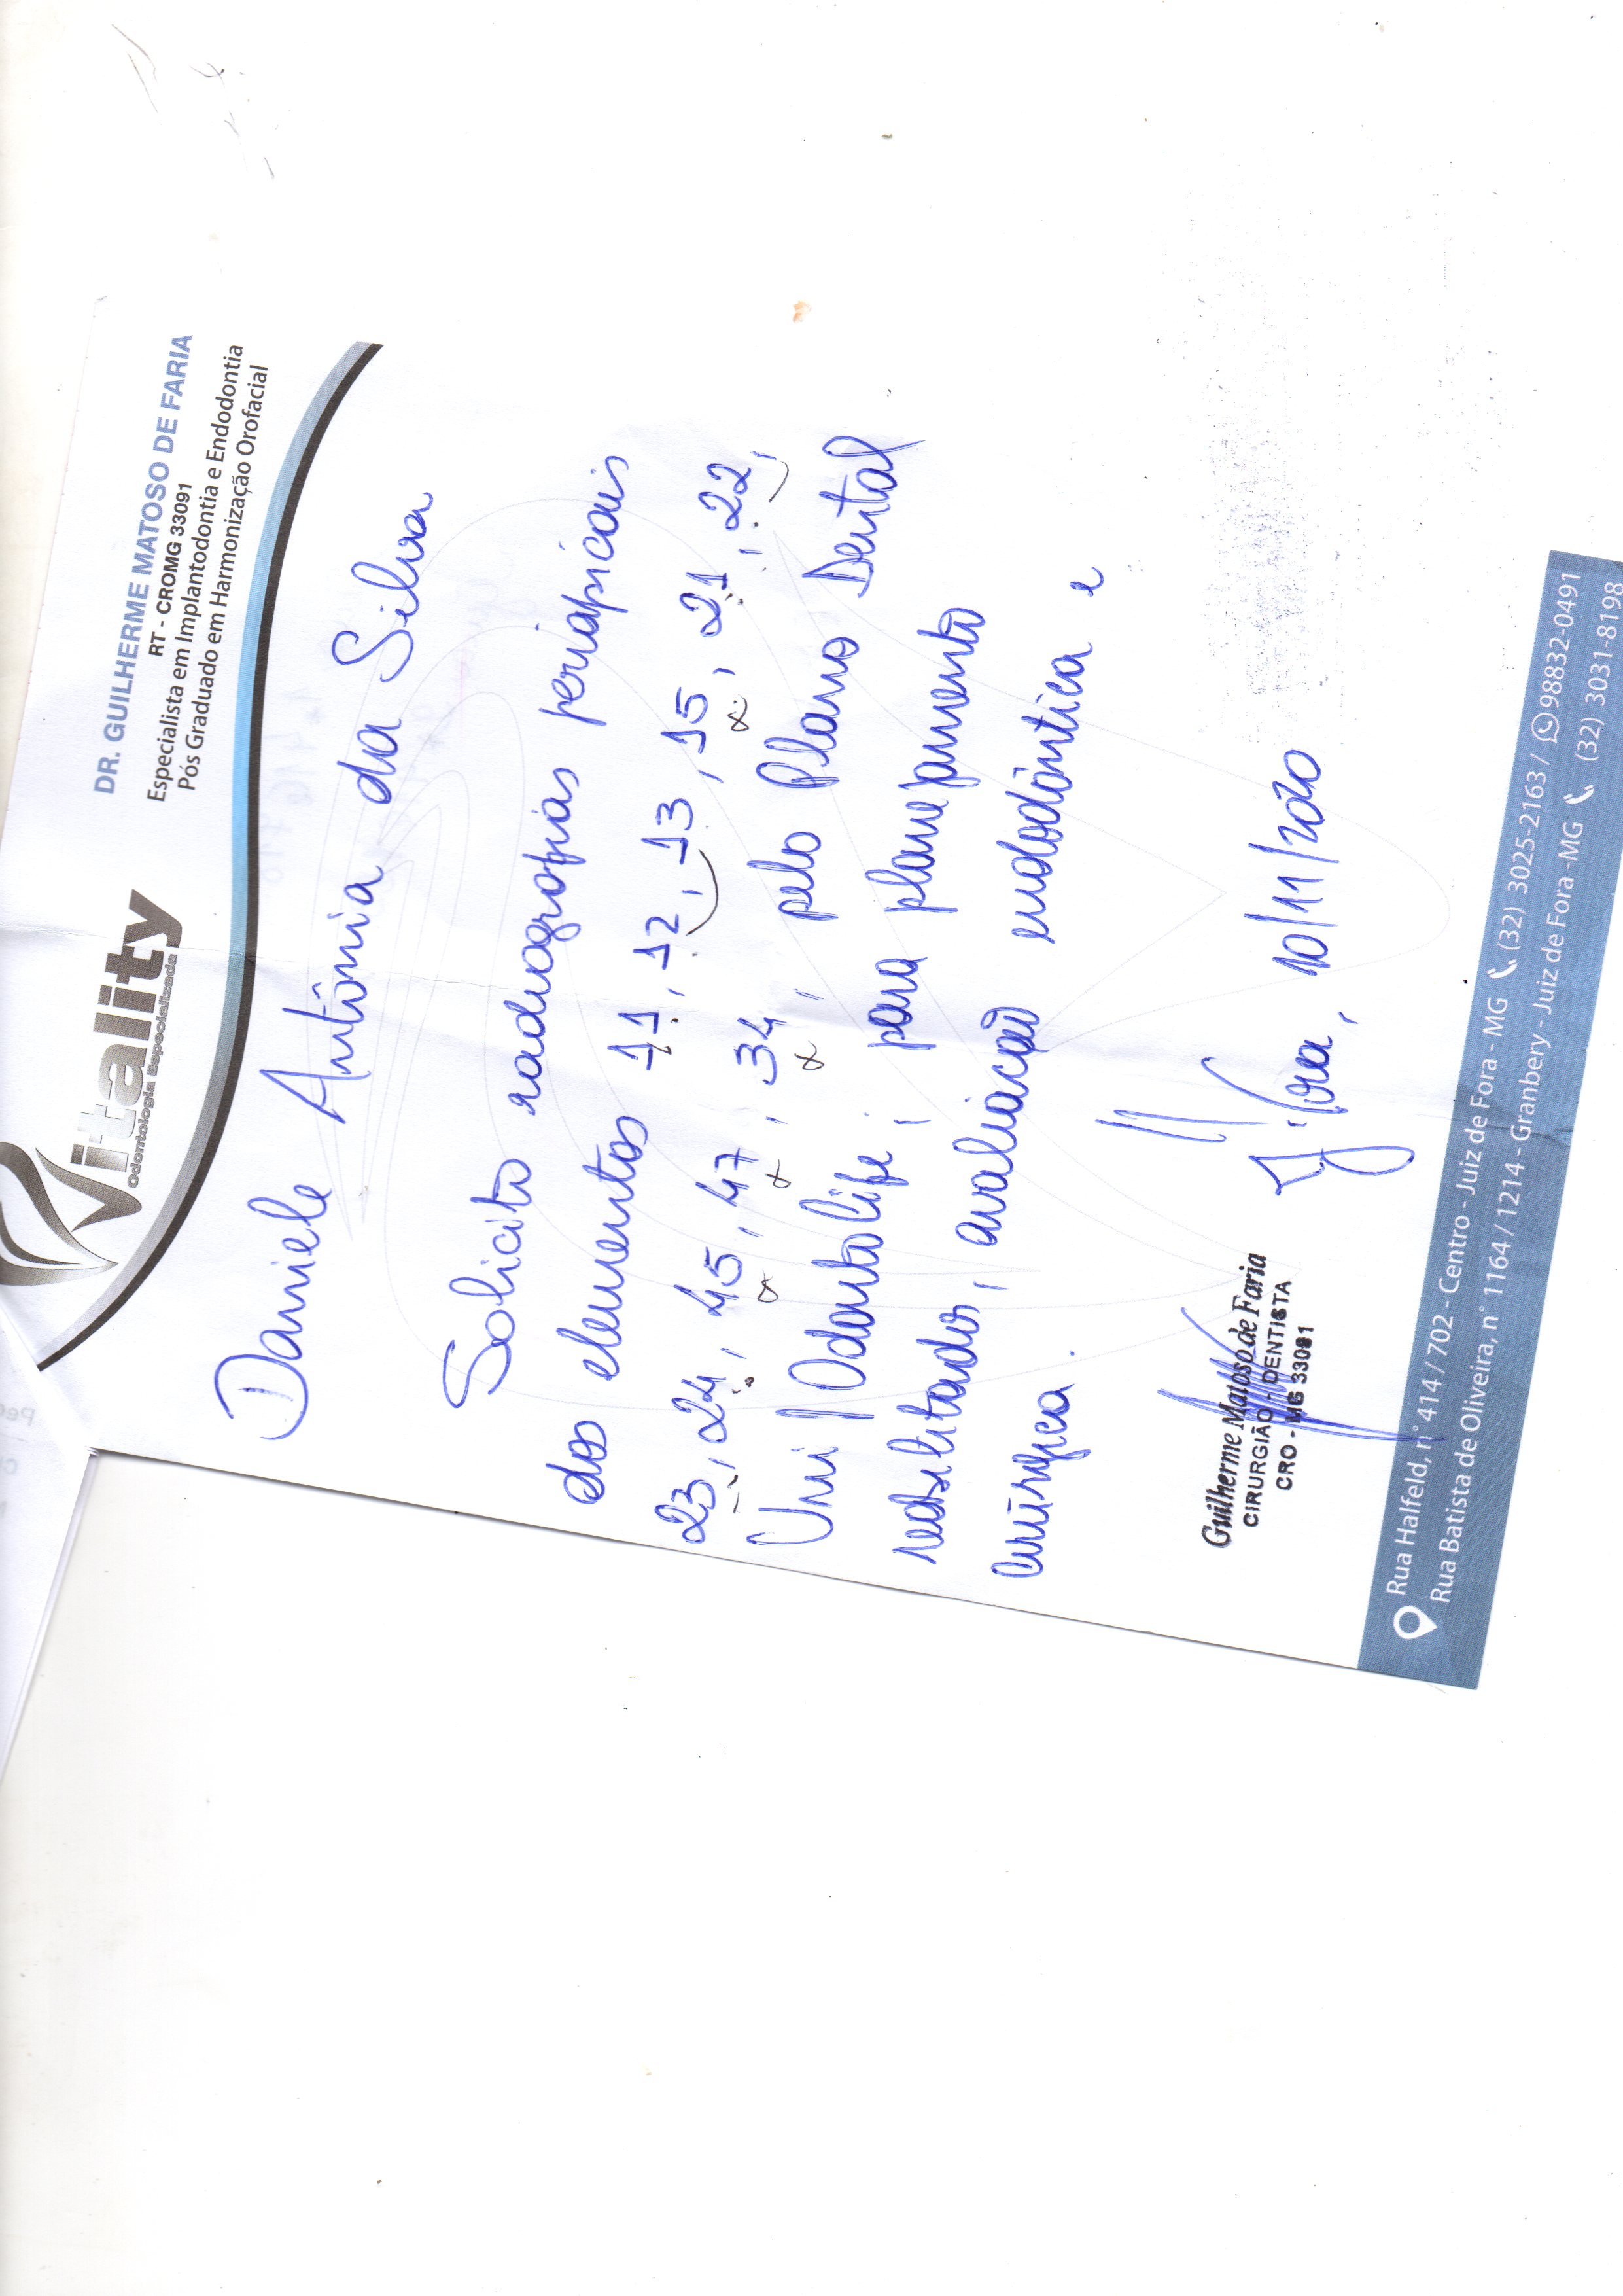 Vitality
Odontologia Especializada
DR. GUILHERME MATOSO DE FARIA
RT - CROMG 33091
Especialista em Implantodontia e Endodontia
Pós Graduado em Harmonização Orofacial
Daniele Antônia da Silva
Solicito radiografias periapicais
dos elementos 11, 12, 13, 15, 21, 22,
23, 24, 45, 47, 34, pelo Plano Dental
Uni Odontolife, para planejamento
reabilitador, avaliação endodôntica e
cirúrgica.
J. Fora, 10/11/2020
Guilherme Matoso de Faria
CIRURGIÃO - DENTISTA
CRO - MG 33091
Rua Halfeld, n° 414 / 702 - Centro - Juiz de Fora - MG (32) 3025-2163 / 98832-0491
Rua Batista de Oliveira, n° 1164 / 1214 - Granbery - Juiz de Fora -MG (32) 3031-8198